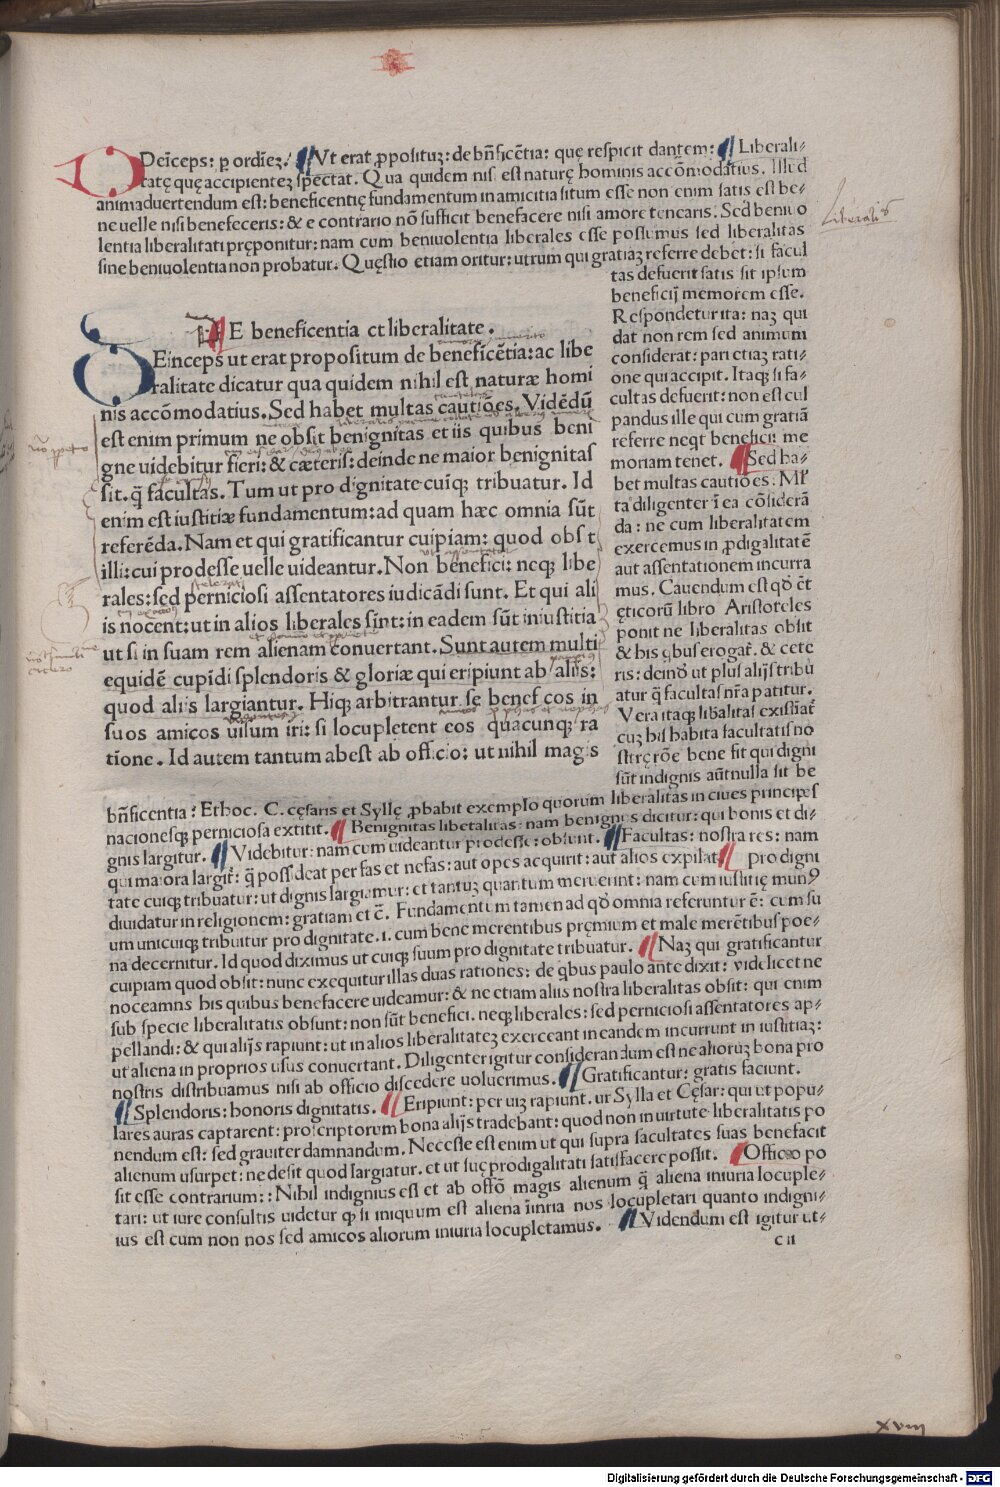 DEīceps: ꝑ ordīeꝫ. Vt erat ꝓpoſituꝫ: de bn̄ficētia: quę reſpicit dantem: Liberali⸗
tatę quę accipienteꝫ ſpectat. Qua quidem niſi eſt naturę hominis accōmodatius. Illud
animaduertendum eſt: beneficentię fundamentum in amicitia ſitum eſſe non enim ſatis eſt be⸗
ne uelle niſi benefeceris: & e contrario nō ſufficit benefacere niſi amore tenearis. Sed beniuo
lentia liberalitati pręponitur: nam cum beniuolentia liberales eſſe poſſumus ſed liberalitas
ſine beniuolentia non probatur. Quęſtio etiam oritur: utrum qui gratiaꝫ referre debet: ſi facul
tas defuerit ſatis ſit ipſum
beneficij memorem eſſe.
Reſpondetur ita: naꝫ qui
dat non rem ſed animum
conſiderat: pari etiaꝫ rati⸗
one qui accipit. Itaqꝫ ſi fa⸗
cultas defuerit: non eſt cul
pandus ille qui cum gratiā
referre neqt beneficij me
moriam tenet. Sed ha⸗
bet multas cautiōes. Ml̄
ta diligenter ī ea cōſiderā
da: ne cum liberalitatem
exercemus in ꝓdigalitatē
aut aſſentationem incurra
mus. Cauendum eſt qd̄ ēt
ęticorū libro Ariſtoteles
ponit ne liberalitas obſit
& his qbus erogat̄. & cete
ris: deīnō ut pluſ alijſ tribū
atur q̄ facultaſ nr̄a patitur.
Vera itaqꝫ lib̄alitaſ exiſtīat̄
cuꝫ hiſ habita facultatiſ no
ſtrę rōe bene fit qui digni
ſūt indignis aūt nulla fit be
DE beneficentia et liberalitate.
DEinceps ut erat propoſitum de beneficētia: ac libe
ralitate dicatur qua quidem nihil eſt naturæ homi
nis accōmodatius. Sed habet multas cautiōes. Vidēdū
eſt enim primum ne obſit benignitas et iis quibus beni
gne uidebitur fieri: & cæteris: deinde ne maior benignitaſ
ſit. q̄ facultas. Tum ut pro dignitate cuiqꝫ tribuatur. Id
enim eſt iuſtitiæ fundamentum: ad quam hæc omnia ſūt
referēda. Nam et qui gratificantur cuipiam: quod obſit
illi: cui prodeſſe uelle uideantur. Non benefici: neqꝫ libe
rales: ſed pernicioſi aſſentatores iudicādi ſunt. Et qui ali
is nocent: ut in alios liberales ſint: in eadem ſūt iniuſtitia
ut ſi in ſuam rem alienam conuertant. Sunt autem multi
equidē cupidi ſplendoris & gloriæ qui eripiunt ab aliis:
quod aliis largiantur. Hiqꝫ arbitrantur ſe beneficos in
ſuos amicos uiſum iri: ſi locupletent eos quacunqꝫ ra
tione. Id autem tantum abeſt ab officio: ut nihil magis
bn̄ficentia: Et hoc. C. ceſaris et Syllę ꝓbabit exemplo quorum liberalitas in ciues principeſ
nacioneſqꝫ pernicioſa extitit. Benignitas liberalitas: nam benignus dicitur: qui bonis et di⸗
gnis largitur. Videbitur: nam cum uideantur prodeſſe: obſunt. Facultas: noſtra res: nam
qui maiora largit̄: q̄ poſſideat per fas et nefas: aut opes acquirit: aut alios expilat. pro digni
tate cuiqꝫ tribuatur: ut dignis largiamur: et tantuꝫ quantum meruerint: nam cum iuſtitię munꝰ
diuidatur in religionem: gratiam et c̄. Fundamentum tamen ad qd̄ omnia referuntur ē: cum ſu
um unicuiqꝫ tribuitur pro dignitate. i. cum bene merentibus pręmium et male merētibuſ poe⸗
na decernitur. Id quod diximus ut cuiqꝫ ſuum pro dignitate tribuatur. Naꝫ qui gratificantur
cuipiam quod obſit: nunc exequitur illas duas rationes: de qbus paulo ante dixit: videlicet ne
noceamns his quibus benefacere uideamur: & ne etiam aliis noſtra liberalitas obſit: qui enim
ſub ſpecie liberalitatis obſunt: non ſūt benefici. neqꝫ liberales: ſed pernicioſi aſſentatores ap⸗
pellandi: & qui alijs rapiunt: ut in alios liberalitateꝫ exerceant in eandem incurrunt in iuſtitiaꝫ:
ut aliena in proprios uſus conuertant. Diligenter igitur conſiderandum eſt ne alioruꝫ bona pro
noſtris diſtribuamus niſi ab officio diſcedere uoluerimus. Gratificantur: gratis faciunt.
Splendoris: honoris dignitatis. Eripiunt: per uiꝫ rapiunt. ur Sylla et Ceſar: qui ut popu⸗
lares auras captarent: proſcriptorum bona alijs tradebant: quod non in uirtute liberalitatis po
nendum eſt: ſed grauiter damnandum. Neceſſe eſt enim ut qui ſupra facultates ſuas benefacit
alienum uſurpet: ne deſit quod largiatur. et ut ſuę prodigalitati ſatiſfacere poſſit. Officio po
ſit eſſe contrarium:: Nihil indignius eſt et ab offō magis alienum q̄ aliena iniuria locuple⸗
tari: ut iure conſultis uidetur ꝙ ſi iniquum eſt aliena iīnria nos locupletari quanto indigni⸗
ius eſt cum non nos ſed amicos aliorum iniuria locupletamus. Videndum eſt igitur ut⸗
c ii
xviii
Digitalisierung gefördert durch die Deutsche Forschungsgemeinschaft - DFG